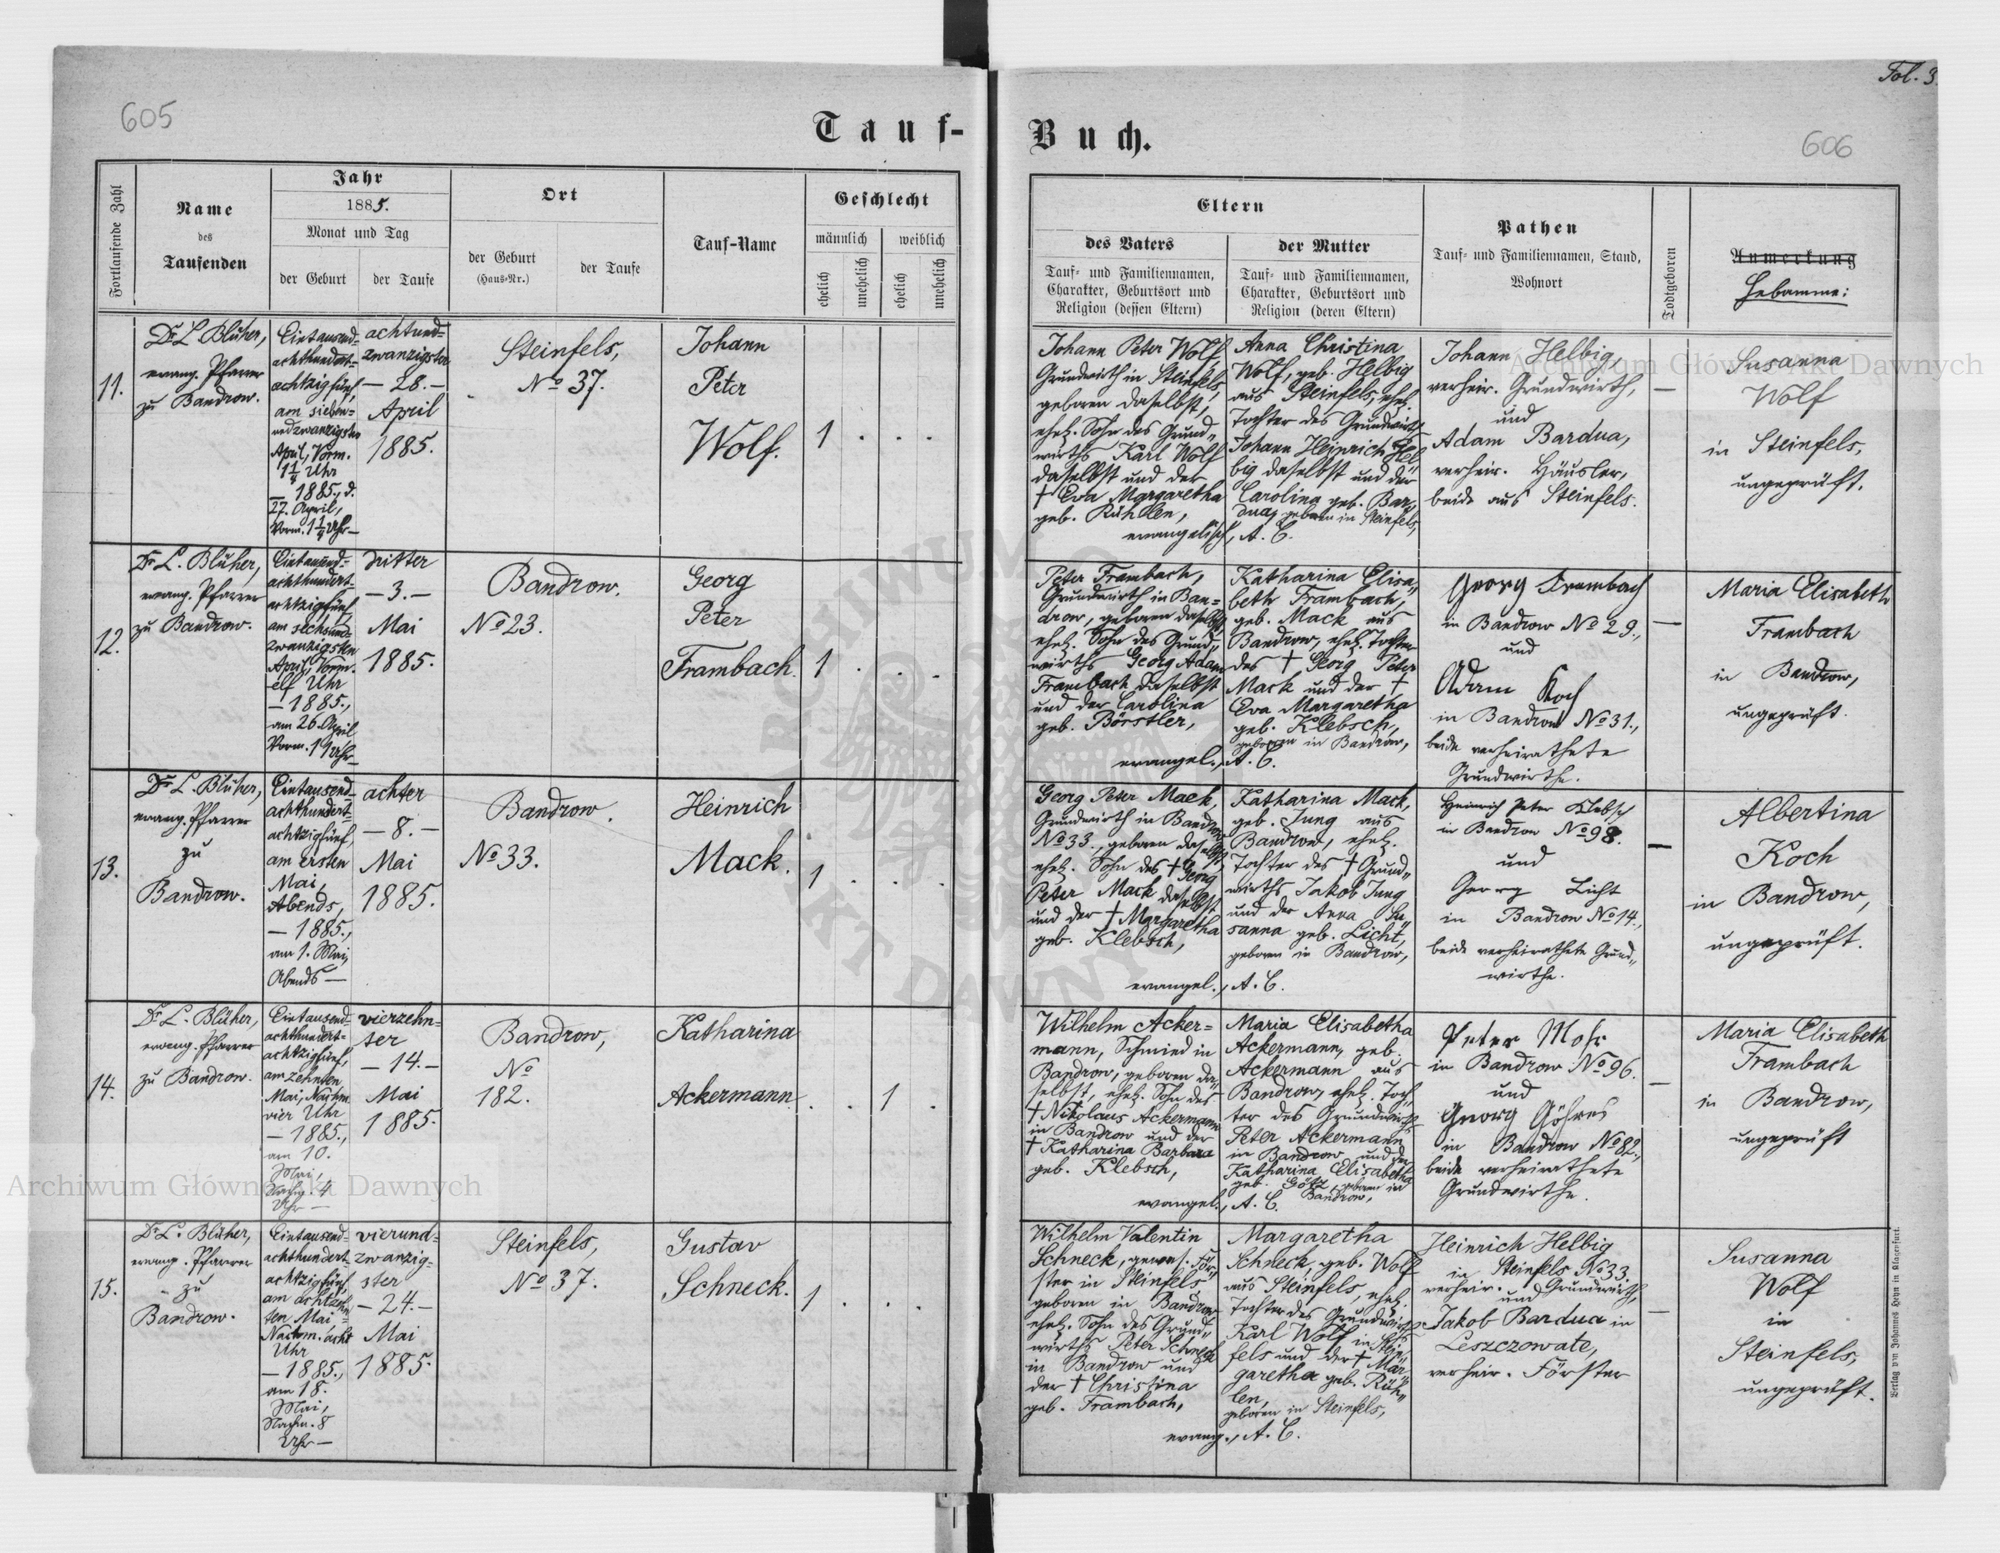 605
Tauf-
Buch.
Fol. 3
606
Fortlaufende Zahl
Name
des
Taufenden
Jahr
1885.
Monat und Tag
der Geburt
der Taufe
Ort
der Geburt
(Haus-Nr.)
der Taufe
Tauf-Name
Geschlecht
männlich
weiblich
ehelich
unehelich
ehelich
unehelich
Eltern
des Vaters
Tauf- und Familiennamen,
Charakter, Geburtsort und
Religion (dessen Eltern)
der Mutter
Tauf- und Familiennamen,
Charakter, Geburtsort und
Religion (deren Eltern)
Pathen
Tauf- und Familiennamen, Stand,
Wohnort
Todtgeboren
Anmerkung
Hebamme:
11.
Dr L. Blüher,
evang. Pfarrer
zu Bandrow.
Eintausend-
achthundert-
achtzigfünf,
am sieben-
undzwanzigsten
April, Vorm.
1½ Uhr
— 1885., d.
27. April,
Vorm. 1½ Uhr —
achtund-
zwanzigster
— 28. —
April
1885.
Steinfels,
No 37.
Johann
Peter
Wolf.
1 . . .
Johann Peter Wolf
Grundwirth in Steinfels,
geboren daselbst,
ehel. Sohn des Grund-
wirths Karl Wolf
daselbst und der
† Eva Margaretha
geb. Rühlen,
evangelisch, A. C.
Anna Christina
Wolf, geb. Helbig
aus Steinfels, ehel.
Tochter des Grundwirths
Johann Heinrich Hel-
big daselbst und der
Carolina geb. Bar-
dua, geboren in Steinfels,
Johann Helbig,
verheir. Grundwirth,
und
Adam Bardua,
verheir. Häusler,
beide aus Steinfels.
—
Susanna
Wolf
in Steinfels,
ungeprüft.
12.
Dr L. Blüher,
evang. Pfarrer
zu Bandrow.
Eintausend-
achthundert-
achtzigfünf,
am sechsund-
zwanzigsten
April, Vorm.
elf Uhr
— 1885.,
am 26. April
Vorm. 11 Uhr —
dritter
— 3. —
Mai
1885.
Bandrow.
No 23.
Georg
Peter
Frambach.
1 . . .
Peter Frambach,
Grundwirth in Ban-
drow, geboren daselbst,
ehel. Sohn des Grund-
wirths Georg Adam
Frambach daselbst
und der Carolina
geb. Börstler,
evangel., A. C.
Katharina Elisa-
beth Frambach,
geb. Mack aus
Bandrow, ehel. Tochter
des † Georg Peter
Mack und der †
Eva Margaretha
geb. Klebsch,
geboren in Bandrow,
Georg Frambach
in Bandrow No 29.,
und
Adam Koch
in Bandrow No 31.,
beide verheirathete
Grundwirthe.
—
Maria Elisabeth
Frambach
in Bandrow,
ungeprüft.
13.
Dr L. Blüher,
evang. Pfarrer
zu
Bandrow.
Eintausend-
achthundert-
achtzigfünf,
am ersten
Mai,
Abends,
— 1885.,
am 1. Mai,
Abends —
achter
— 8. —
Mai
1885.
Bandrow.
No 33.
Heinrich
Mack.
1 . . .
Georg Peter Mack,
Grundwirth in Bandrow
No 33., geboren daselbst,
ehel. Sohn des † Georg
Peter Mack daselbst
und der † Margaretha
geb. Klebsch,
evangel., A. C.
Katharina Mack,
geb. Jung aus
Bandrow, ehel.
Tochter des † Grund-
wirths Jakob Jung
und der Anna Su-
sanna geb. Licht,
geboren in Bandrow,
Heinrich Peter Klebsch
in Bandrow No 98.
und
Georg Licht
in Bandrow No 14.,
beide verheirathete Grund-
wirthe.
—
Albertina
Koch
in Bandrow,
ungeprüft.
14.
Dr L. Blüher,
evang. Pfarrer
zu Bandrow.
Eintausend-
achthundert-
achtzigfünf,
am zehnten
Mai, Nachm.
vier Uhr
— 1885.,
am 10.
Mai,
Nachm. 4
Uhr —
vierzehn-
ter
— 14. —
Mai
1885.
Bandrow,
No
182.
Katharina
Ackermann.
. . 1 .
Wilhelm Acker-
mann, Schmied in
Bandrow, geboren da-
selbst, ehel. Sohn des
† Nikolaus Ackermann
in Bandrow und der
† Katharina Barbara
geb. Klebsch,
evangel., A. C.
Maria Elisabetha
Ackermann, geb.
Ackermann aus
Bandrow, ehel. Toch-
ter des Grundwirths
Peter Ackermann
in Bandrow und der
Katharina Elisabetha
geb. Götz, geboren in
Bandrow,
Peter Mohr
in Bandrow No 96.
und
Georg Göhres
in Bandrow No 82.,
beide verheirathete
Grundwirthe.
—
Maria Elisabeth
Frambach
in Bandrow,
ungeprüft
15.
Dr L. Blüher,
evang. Pfarrer
zu
Bandrow.
Eintausend-
achthundert-
achtzigfünf,
am achtzehn-
ten Mai
Nachm. acht
Uhr
— 1885.,
am 18.
Mai,
Nachm. 8
Uhr —
vierund-
zwanzig-
ster
— 24. —
Mai
1885.
Steinfels,
No 37.
Gustav
Schneck.
1 . . .
Wilhelm Valentin
Schneck, gewes. För-
ster in Steinfels
geboren in Bandrow
ehel. Sohn des Grund-
wirths Peter Schneck
in Bandrow und
der † Christina
geb. Frambach,
evang., A. C.
Margaretha
Schneck, geb. Wolf
aus Steinfels, ehel.
Tochter des Grundwirths
Karl Wolf in Stein-
fels und der † Mar-
garetha geb. Rüh-
len,
geboren in Steinfels,
Heinrich Helbig
in Steinfels No 33,
verheir. Grundwirth,
und
Jakob Bardua in
Leszczowate,
verheir. Förster
—
Susanna
Wolf
in
Steinfels,
ungeprüft.
Verlag von Johannes Heyn in Klagenfurt.
Archiwum Główne Akt Dawnych
Archiwum Główne Akt Dawnych
ARCHIWUM
AKT DAWNYCH